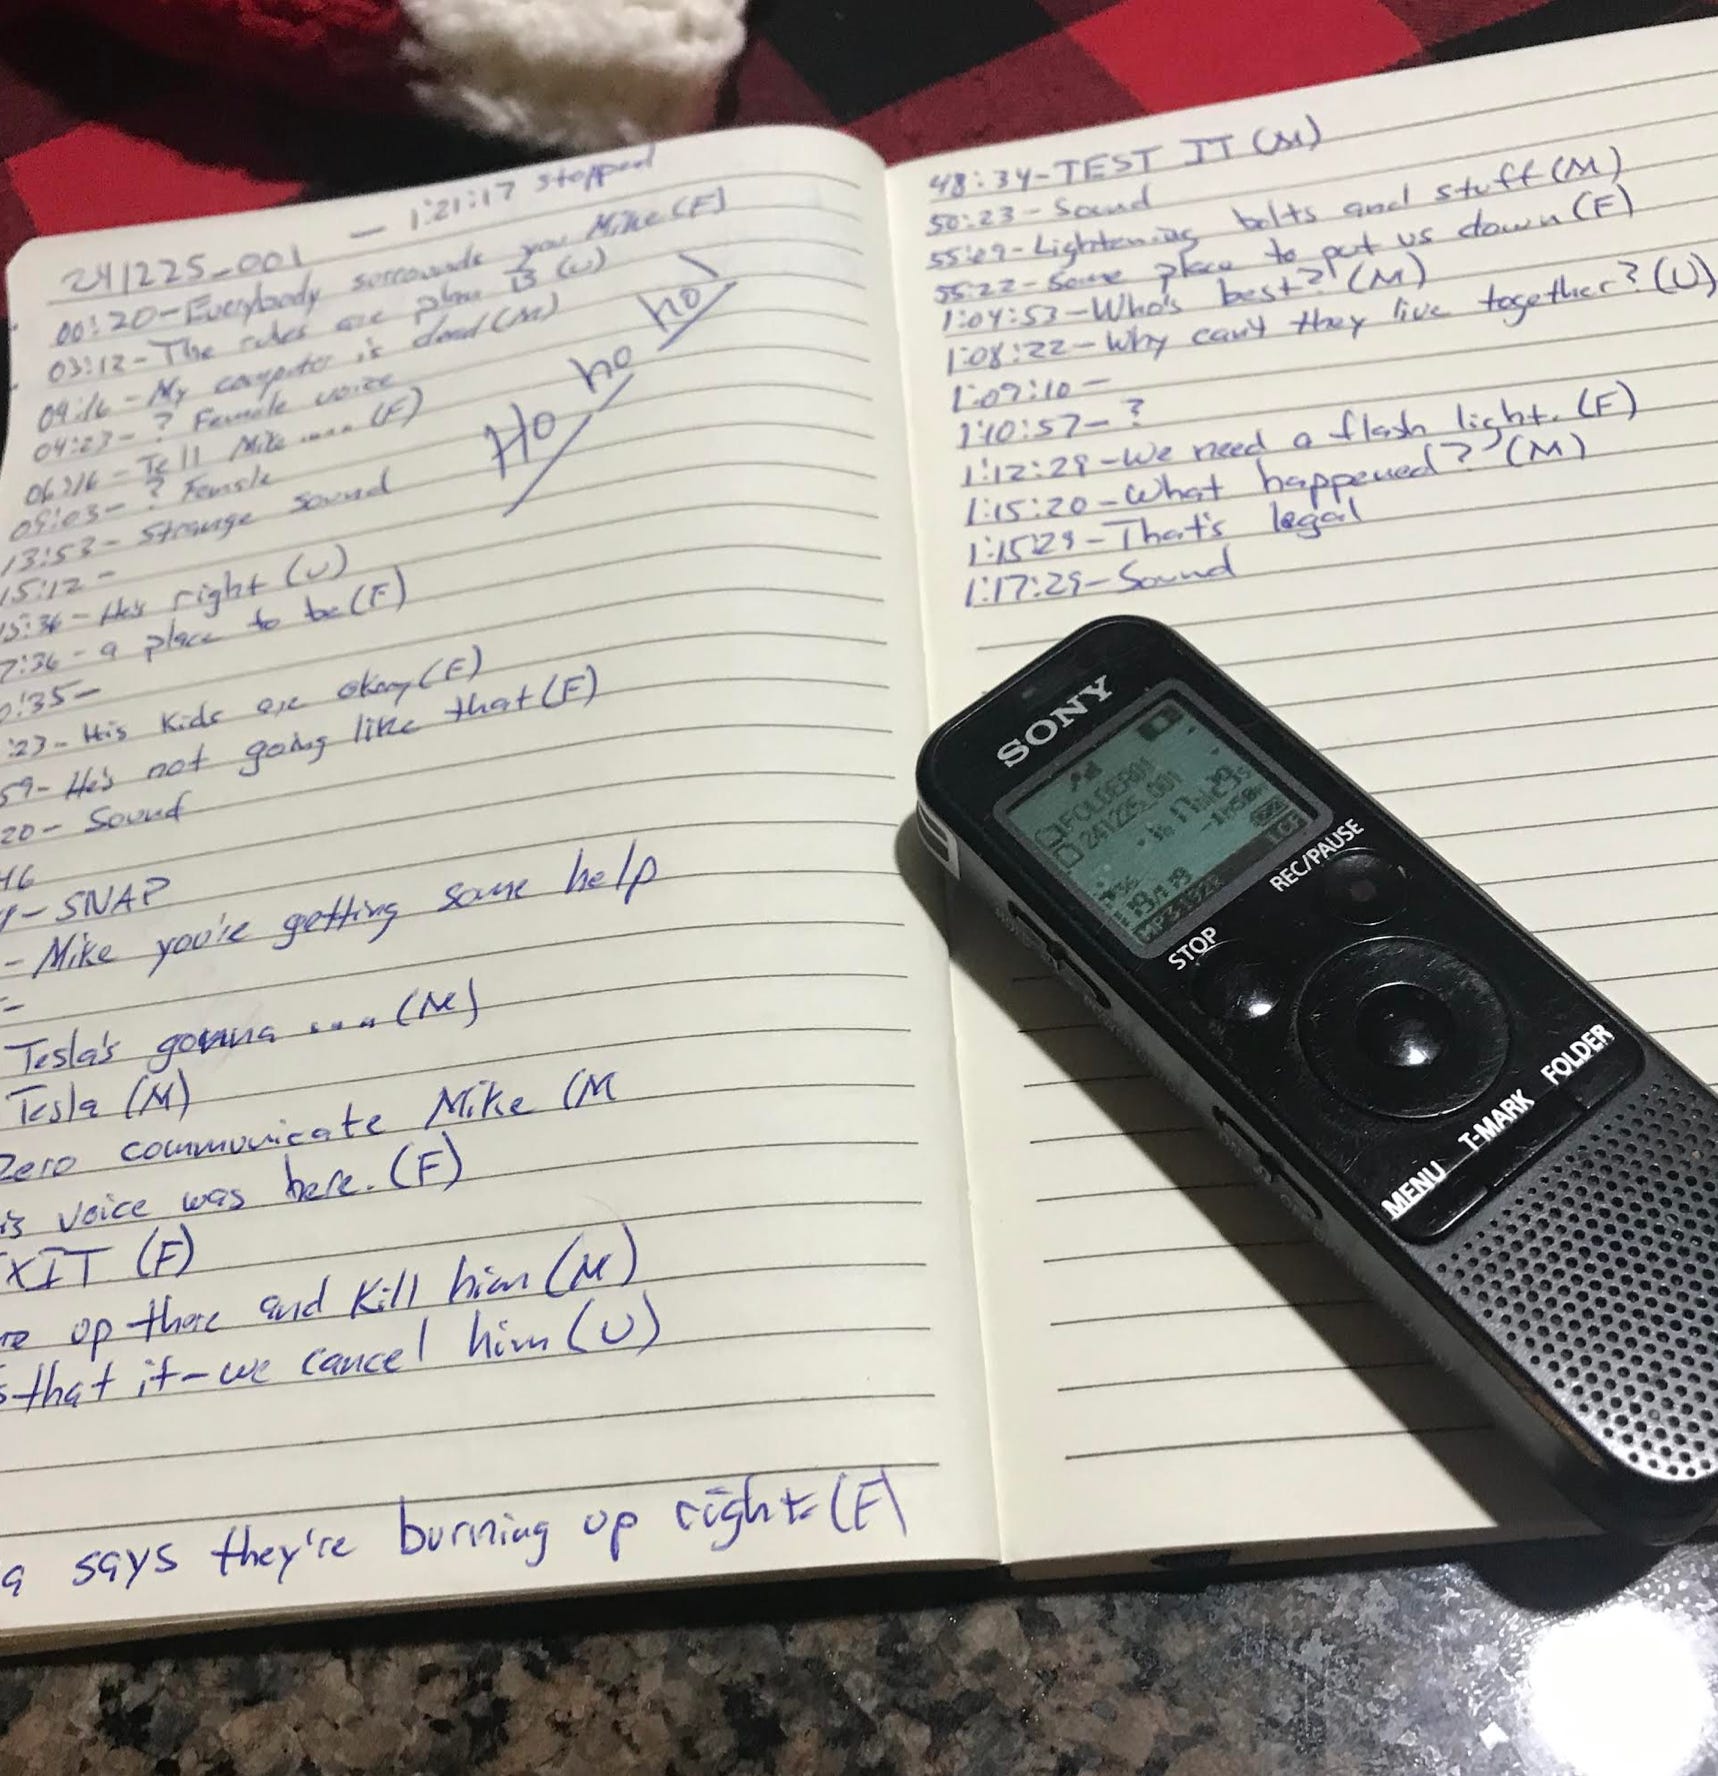 241225_001 — 1:21:17 stopped
00:20-Everybody sorrounds you Mike (F)
03:12-The rules are plan B (U)
04:16-My computer is dead (M)
04:23-? Female voice
06:16-Tell Mike .... (F)
09:03-? Female
13:53-Strange sound
15:12-
15:36-He's right (U)
7:36-a place to be (F)
:35-
:23-His Kids are okay (F)
59-He's not going like that (F)
20-Sound
46
-SNAP
-Mike you're getting some help
-
Tesla's gonna .... (M)
Tesla (M)
Zero communicate Mike (M
is voice was here. (F)
XIT (F)
re up there and Kill him (M)
s that it-we cancel him (U)
a says they're burning up right (F)
Ho ho ho
48:34-TEST IT (M)
50:23-Sound
55:09-Lightening bolts and stuff (M)
55:22-Some place to put us down (F)
1:04:53-Who's best? (M)
1:08:22-Why can't they live together? (U)
1:09:10-
1:10:57-?
1:12:29-We need a flash light. (F)
1:15:20-What happened? (M)
1:15:29-That's legal
1:17:29-Sound
SONY
FOLDER01
241225_001
1h17m29s
REC/PAUSE
STOP
FOLDER
T-MARK
MENU